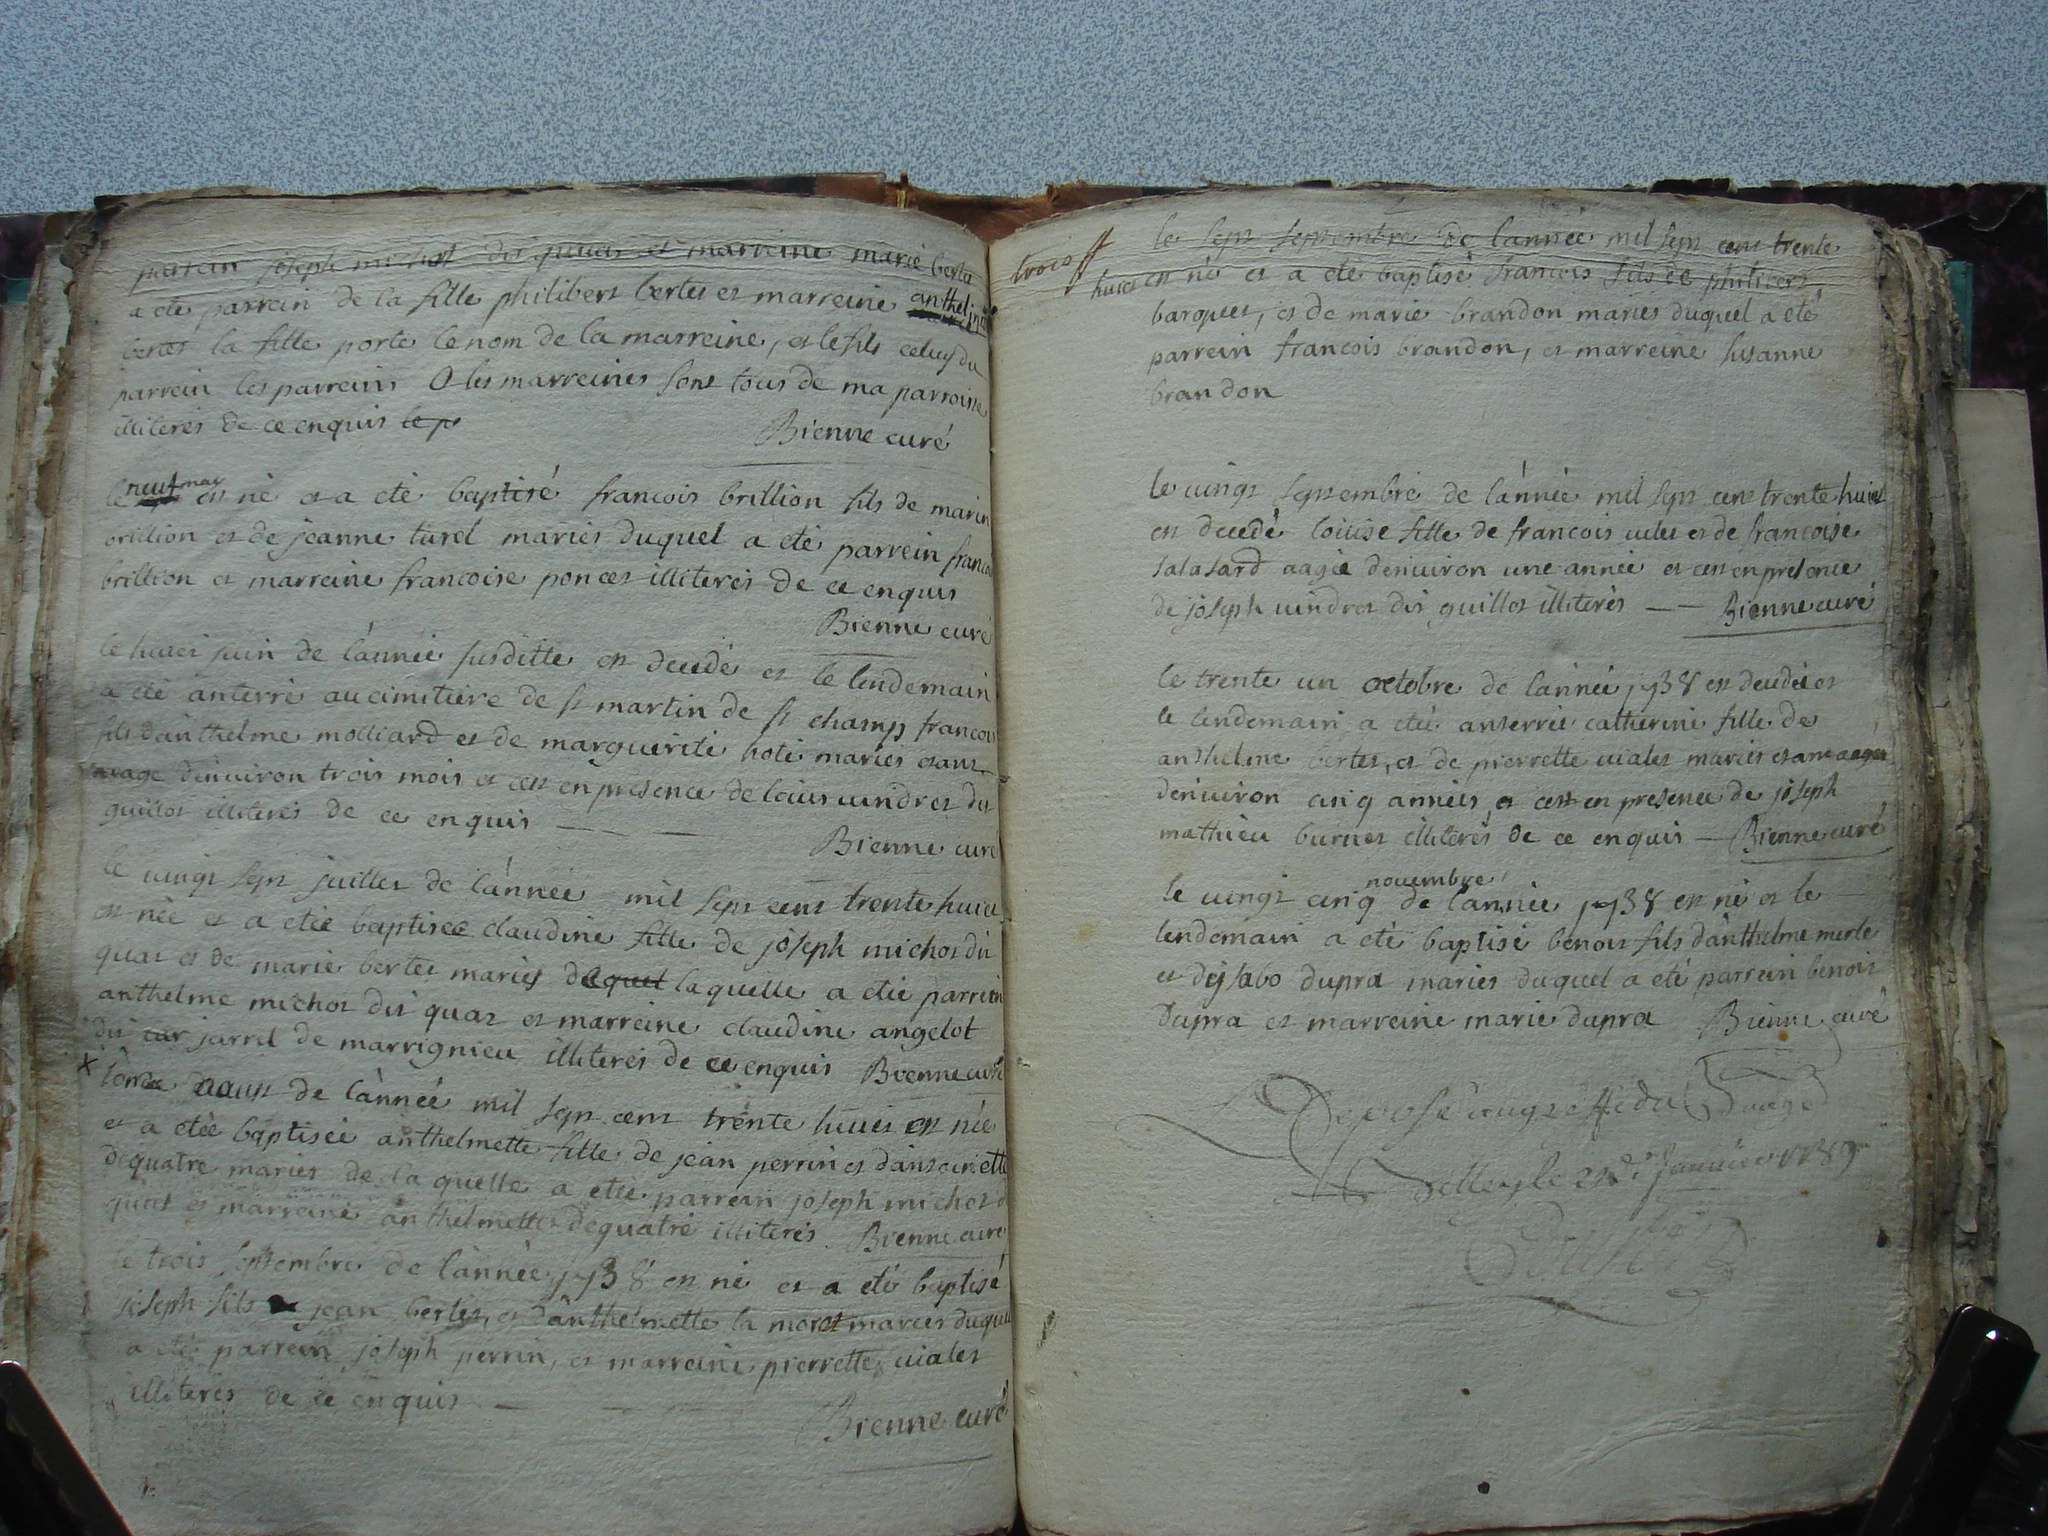 parrein joseph michot dit quar et marreine marie bertet
a eté parrein de la fille philibert bertet et marreine anthelmette
bertet la fille porte le nom de la marreine, et le fils celuy du
parrein les parreins & les marreines sont tous de ma parroisse
illiterés de ce enquis
Bienne curé
le neuf may est né et a eté baptisé francois brillion fils de marin
brillion et de jeanne turel mariés duquel a eté parrein francois
brillion et marreine francoise poncet illiterés de ce enquis
Bienne curé
le huict juin de l'année susditte est decedé et le lendemain
a eté anterré au cimitiere de st martin de st champ francois
fils d'anthelme molliard et de marguerite hote mariés etant
aagé d'enuiron trois mois et cest en presence de louis uindret dit
guillot illiterés de ce enquis
Bienne curé
le uingt sept juillet de l'année mil sept cent trente huict
est née et a etée baptisee claudine fille de joseph michot dit
quar et de marie bertet mariés laquelle a etée parrein
anthelme michot dit quar et marreine claudine angelot
dit jarrel de marrignieu illiterés de ce enquis Bienne curé
x l'onze aoust de l'année mil sept cent trente huict est née
et a etée baptiseé anthelmette fille de jean perrin et d'antoinette
dequatre mariés de laquelle a etée parrein joseph michot d
quar et marreine anthelmette dequatre illiterés Bienne curé
le trois septembre de l'année 1738 est né et a eté baptisé
joseph fils de jean bertet, et d'anthelmette la moret mariés duquel
a eté parrein joseph perrin, et marreine pierrette uialet
illiterés de ce enquis
Bienne curé
trois le sept septembre de l'année mil sept cent trente
huict est né et a eté baptisé francois fils de philibert
barquet, et de marie brandon mariés duquel a eté
parrein francois brandon, et marreine susanne
brandon
le uingt septembre de l'année mil sept cent trente huict
est decedé louise fille de francois et de francoise
salasard aagée d'enuiron une année et cest en presence
de joseph uindret dit guillot illiterés Bienne curé
le trente un octobre de l'année 1738 est decedée et
le lendemain a eté anterrée catherine fille de
anthelme bertet, et de pierrette uialet mariés etant aagée
d'enuiron cinq années et cest en presence de joseph
mathieu burnet illiterés de ce enquis Bienne curé
le uingt cinq novembre de l'année 1738 est né et le
lendemain a eté baptisé benoit fils d'anthelme merle
et dupra mariés duquel a eté parrein benoit
dupra et marreine marie dupra Bienne curé
Deposé au greffe du
Belley le janvier